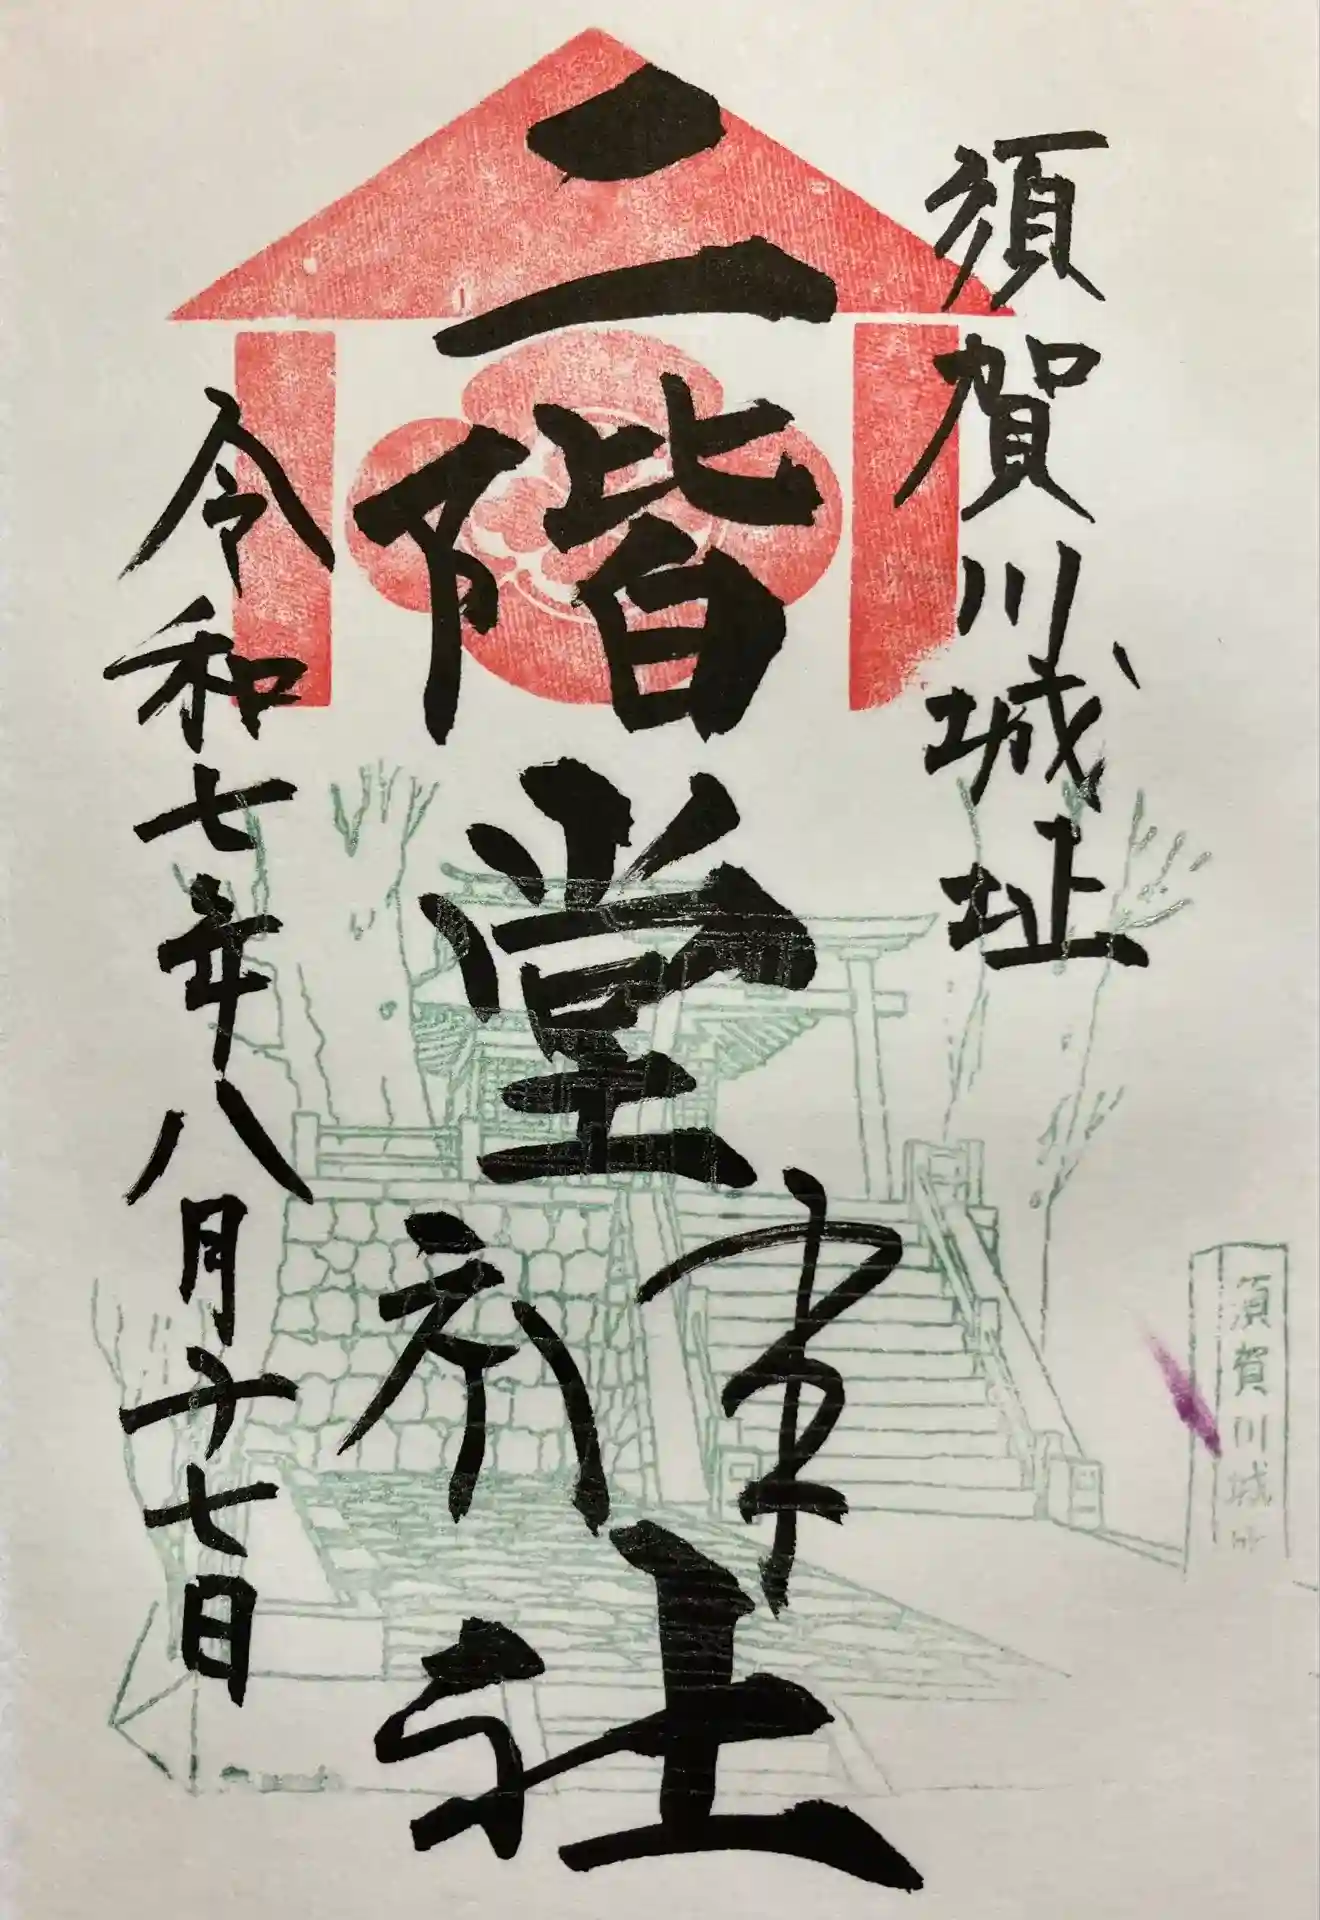 須賀川城址
二階堂神社
令和七年八月十七日
須賀川城